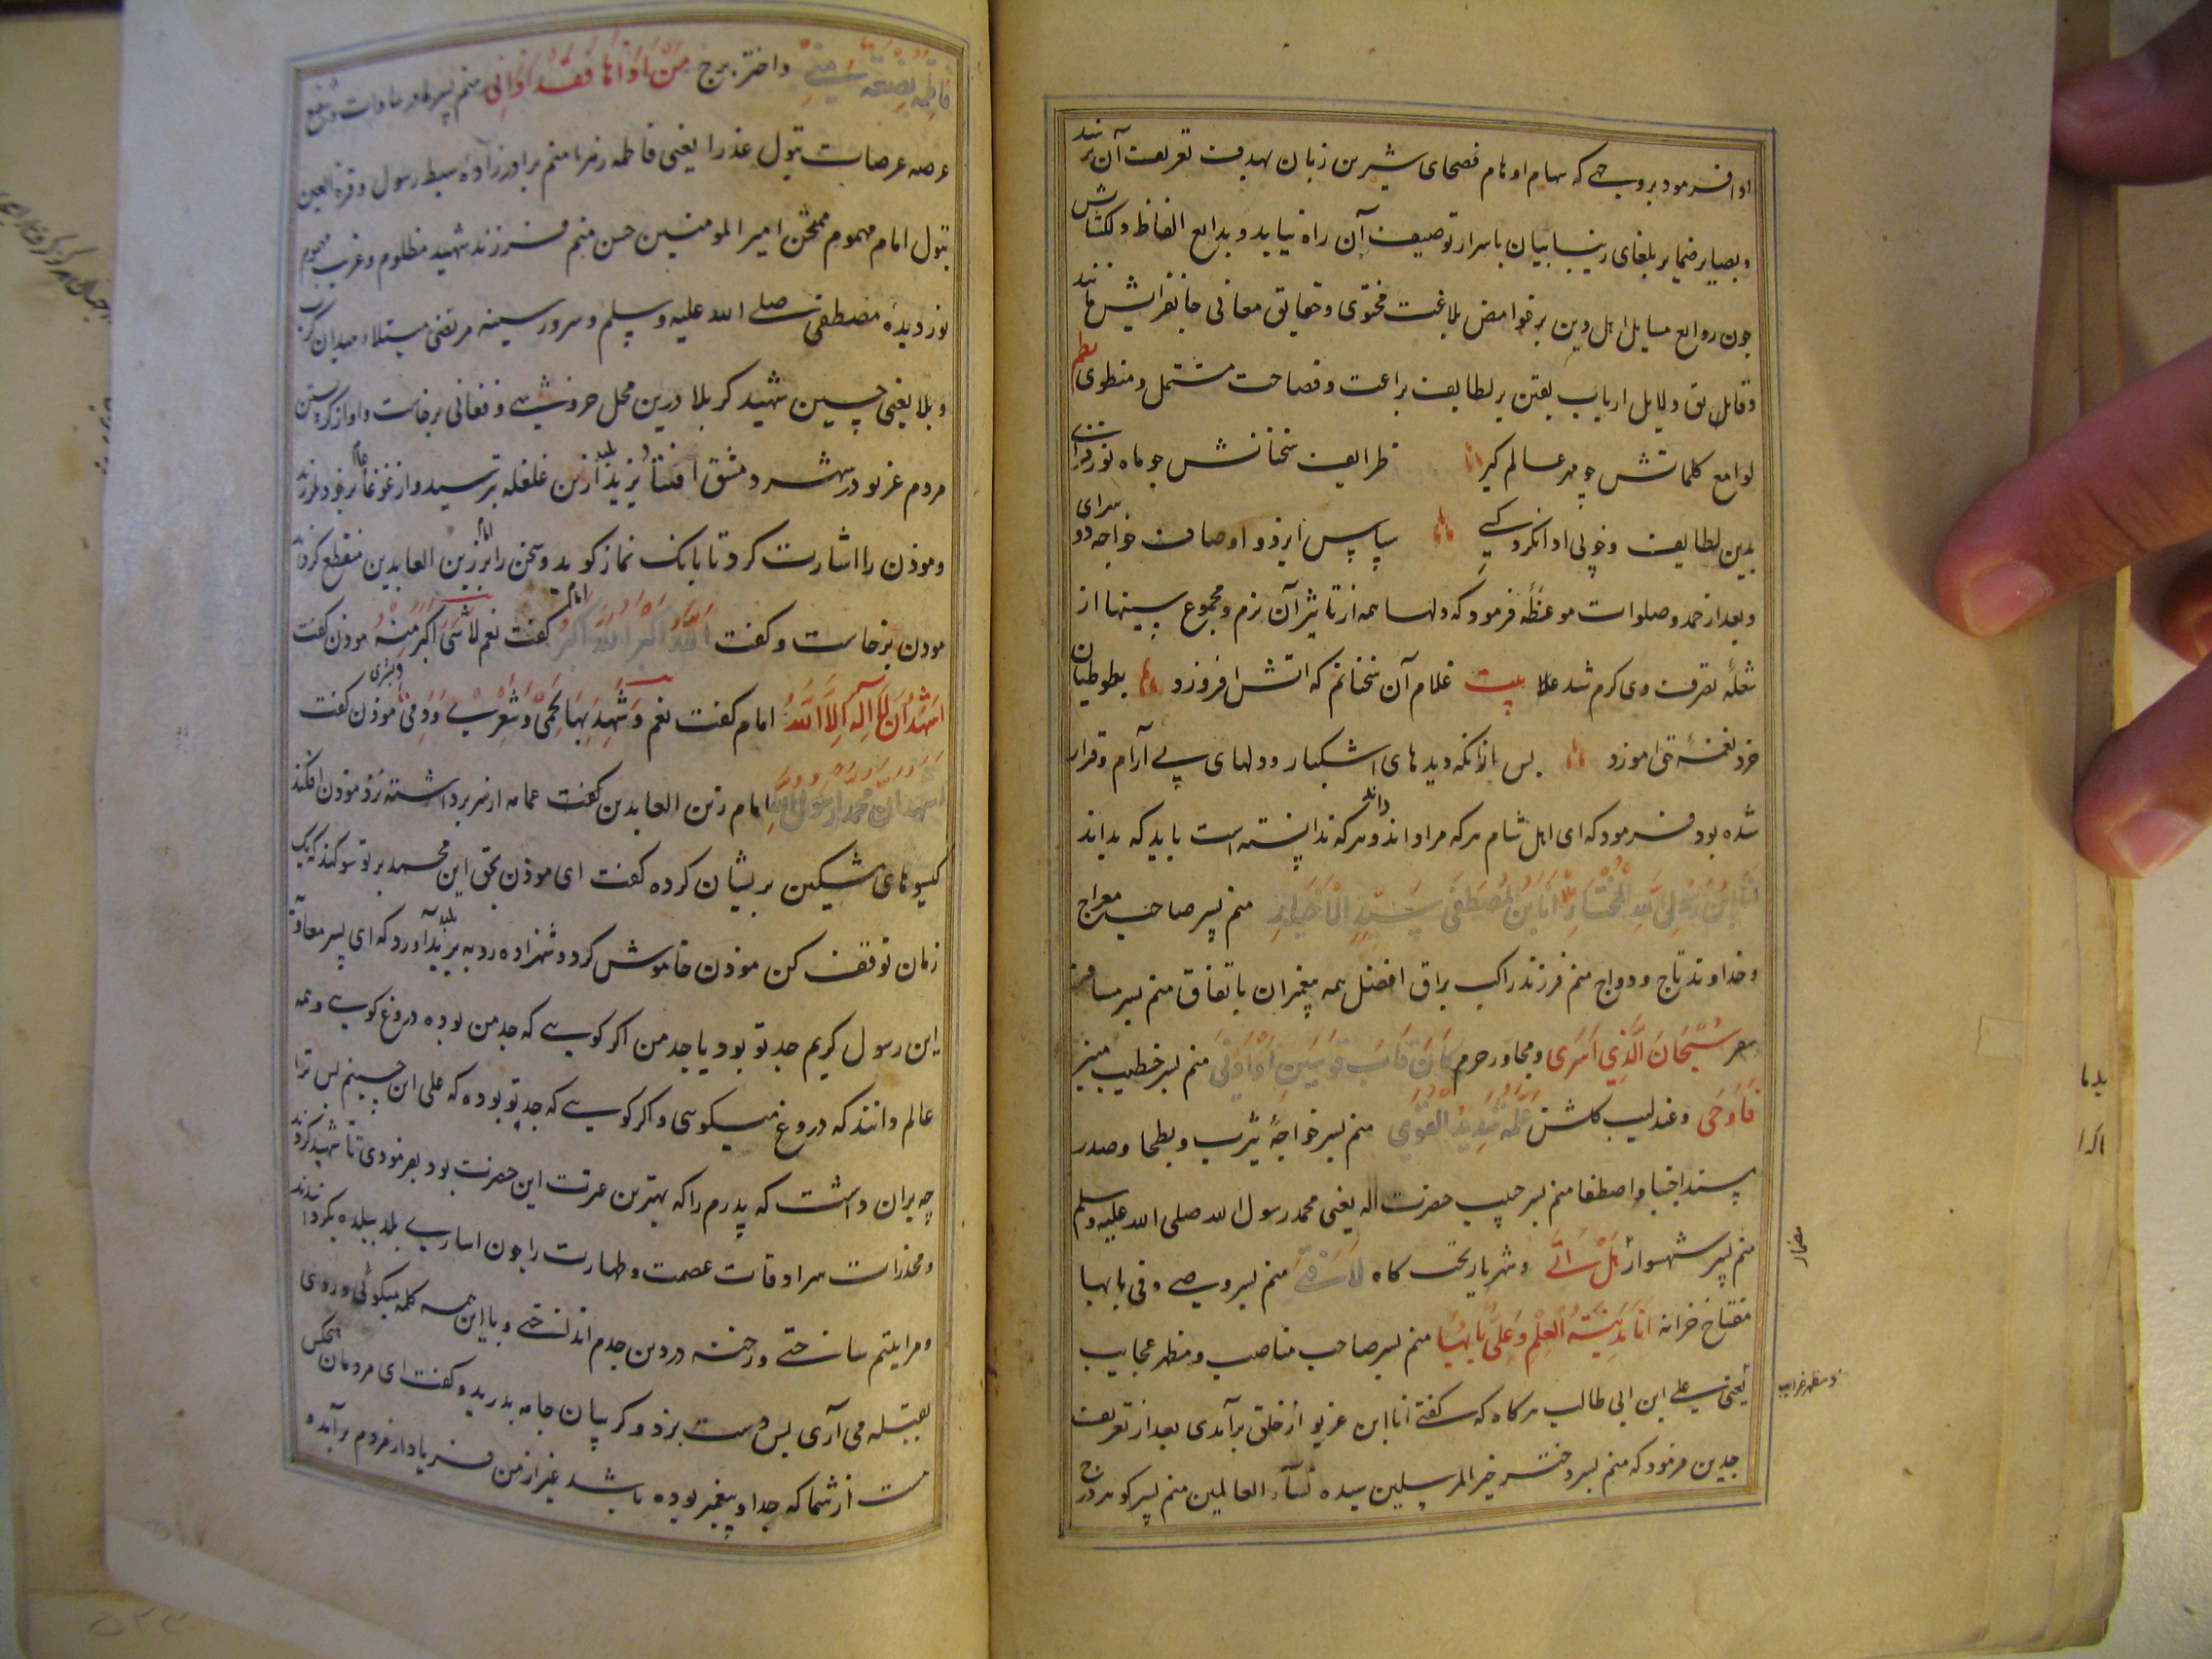 ادا فرمود بروجهی که سهام اوهام فصحای شیرین زبان بهدف تعریف آن نرسند
و بصایر ضمایر بلغای زیبا بیان باسرار توصیف آن راه نیابد و بدایع الفاظ دلکشاش
چون روایع مسایل اهل دین بر غوامض بلاغت محتوی و حقایق معانی جانفزایش مانند
دقایق دلایل ارباب یقین بر لطایف براعت و فصاحت مشتمل و منطوی نظم
لوامع کلماتش چو مهر عالم گیر ظرایف سخنانش چو ماه نور
بدین لطایف و خوبی ادا نکرد کسی سپاس ایزد و اوصاف خواجه دو سرای
و بعد از حمد و صلوات موعظه فرمود که دلها همه از تاثیر آن نرم و مجموع سینها از
شعله تصرف وی گرم شد بیت غلام آن سخنانم که آتش افروزد بطوطیان
خرد نغمه می آموزد پس از آنکه دیدهای اشکبار و دلهای بی آرام و قرار
شده بود فرمود که ای اهل شام هر که مرا داند داند و هر که ندانسته است باید که بداند
انا ابن رسول الله المختار انا ابن المصطفی سید الاخیار منم پسر صاحب معراج
و خداوند تاج و دواج منم فرزند راکب براق افضل همه پیغمبران باتفاق منم پسر مسافر
سفر سبحان الذی اسری و مجاور حرم کان قاب قوسین او ادنی منم پسر خطیب منبر
فاوحی و عندلیب گلشن علمه شدید القوی منم پسر خواجه یثرب و بطحا و صدر
مسند اجتبا و اصطفا منم پسر حبیب حضرت اله یعنی محمد رسول الله صلی الله علیه و سلم
منم پسر شهسوار هل اتی و شهریار تخت گاه لا فتی منم پسر وصی و فی بابها
مفتاح خزانه انا مدینة العلم و علی بابها منم پسر صاحب مناصب و مظهر عجایب
و مظهر غرایب
یعنی علی ابن ابی طالب هر گاه که گفتی انا ابن غریو از خلق برآمدی بعد از تعریف
جدین فرمود که منم پسر دختر خیر المرسلین سیده نسآء العالمین منم پسر گوهر درج
فاطمة بضعة منی و اختر برج من اذاها فقد اذانی منم پسر مادر سادات و شفیع
عرصه عرصات بتول عذرا یعنی فاطمه زهرا منم برادرزاده سبط رسول و قرة العین
بتول امام مهموم ممتحن امیر المومنین حسن منم فرزند شهید مظلوم و غریب مهموم
نور دیده مصطفی صلی الله علیه و سلم و سرور سینه مرتضی مبتلاء میدان کرب
و بلا یعنی حسین شهید کربلا درین محل خروشی و فغانی برخاست و اواز گریستن
مردم غریو در شهر دمشق افتاد یزید پلید ازین غلغله بترسید و از غوغا عام بر خود لرزید
و موذن را اشارت کرد تا بانک نماز گوید و سخن را بر امام زین العابدین منقطع گرداند
موذن برخاست و گفت الله اکبر الله اکبر امام گفت نعم لا شیء اکبر منه موذن گفت
اشهد ان لا اله الا الله امام گفت نعم و شهد بها لحمی و شعری و بشری و دمی موذن گفت
اشهد ان محمدا رسول الله امام زین العابدین گفت عمامه از سر برداشته نزد موذن افکند
گیسوهای مشکین پریشان کرده گفت ای موذن بحق این محمد بر تو سوگند که یک
زمان توقف کن موذن خاموش کرد و شهزاده رو به یزید پلید آورد که ای پسر معاویه
این رسول کریم جد تو بود یا جد من اگر گویی که جد من بوده دروغ گویی و همه
عالم دانند که دروغ میگوئی و اگر گویی که جد تو بوده که علی ابن حسینم پس ترا
چه بران داشت که پدرم را که بهترین عترت این حضرت بود بفرمودی تا شهید کردند
و مخدرات سرادقات عصمت و طهارت را چون اساری بلد ببلده بگردانیدند
و مرا یتیم ساختی و رخنه در دین جدم انداختی و با این همه کلمه میگوئی و روی
بقبله می آری پس دست بزد و گریبان جامه بدرید و گفت ای مردمان هیچکس
هست از شما که جد او پیغمبر بوده باشد غیر از من فریاد از مردم برآمده